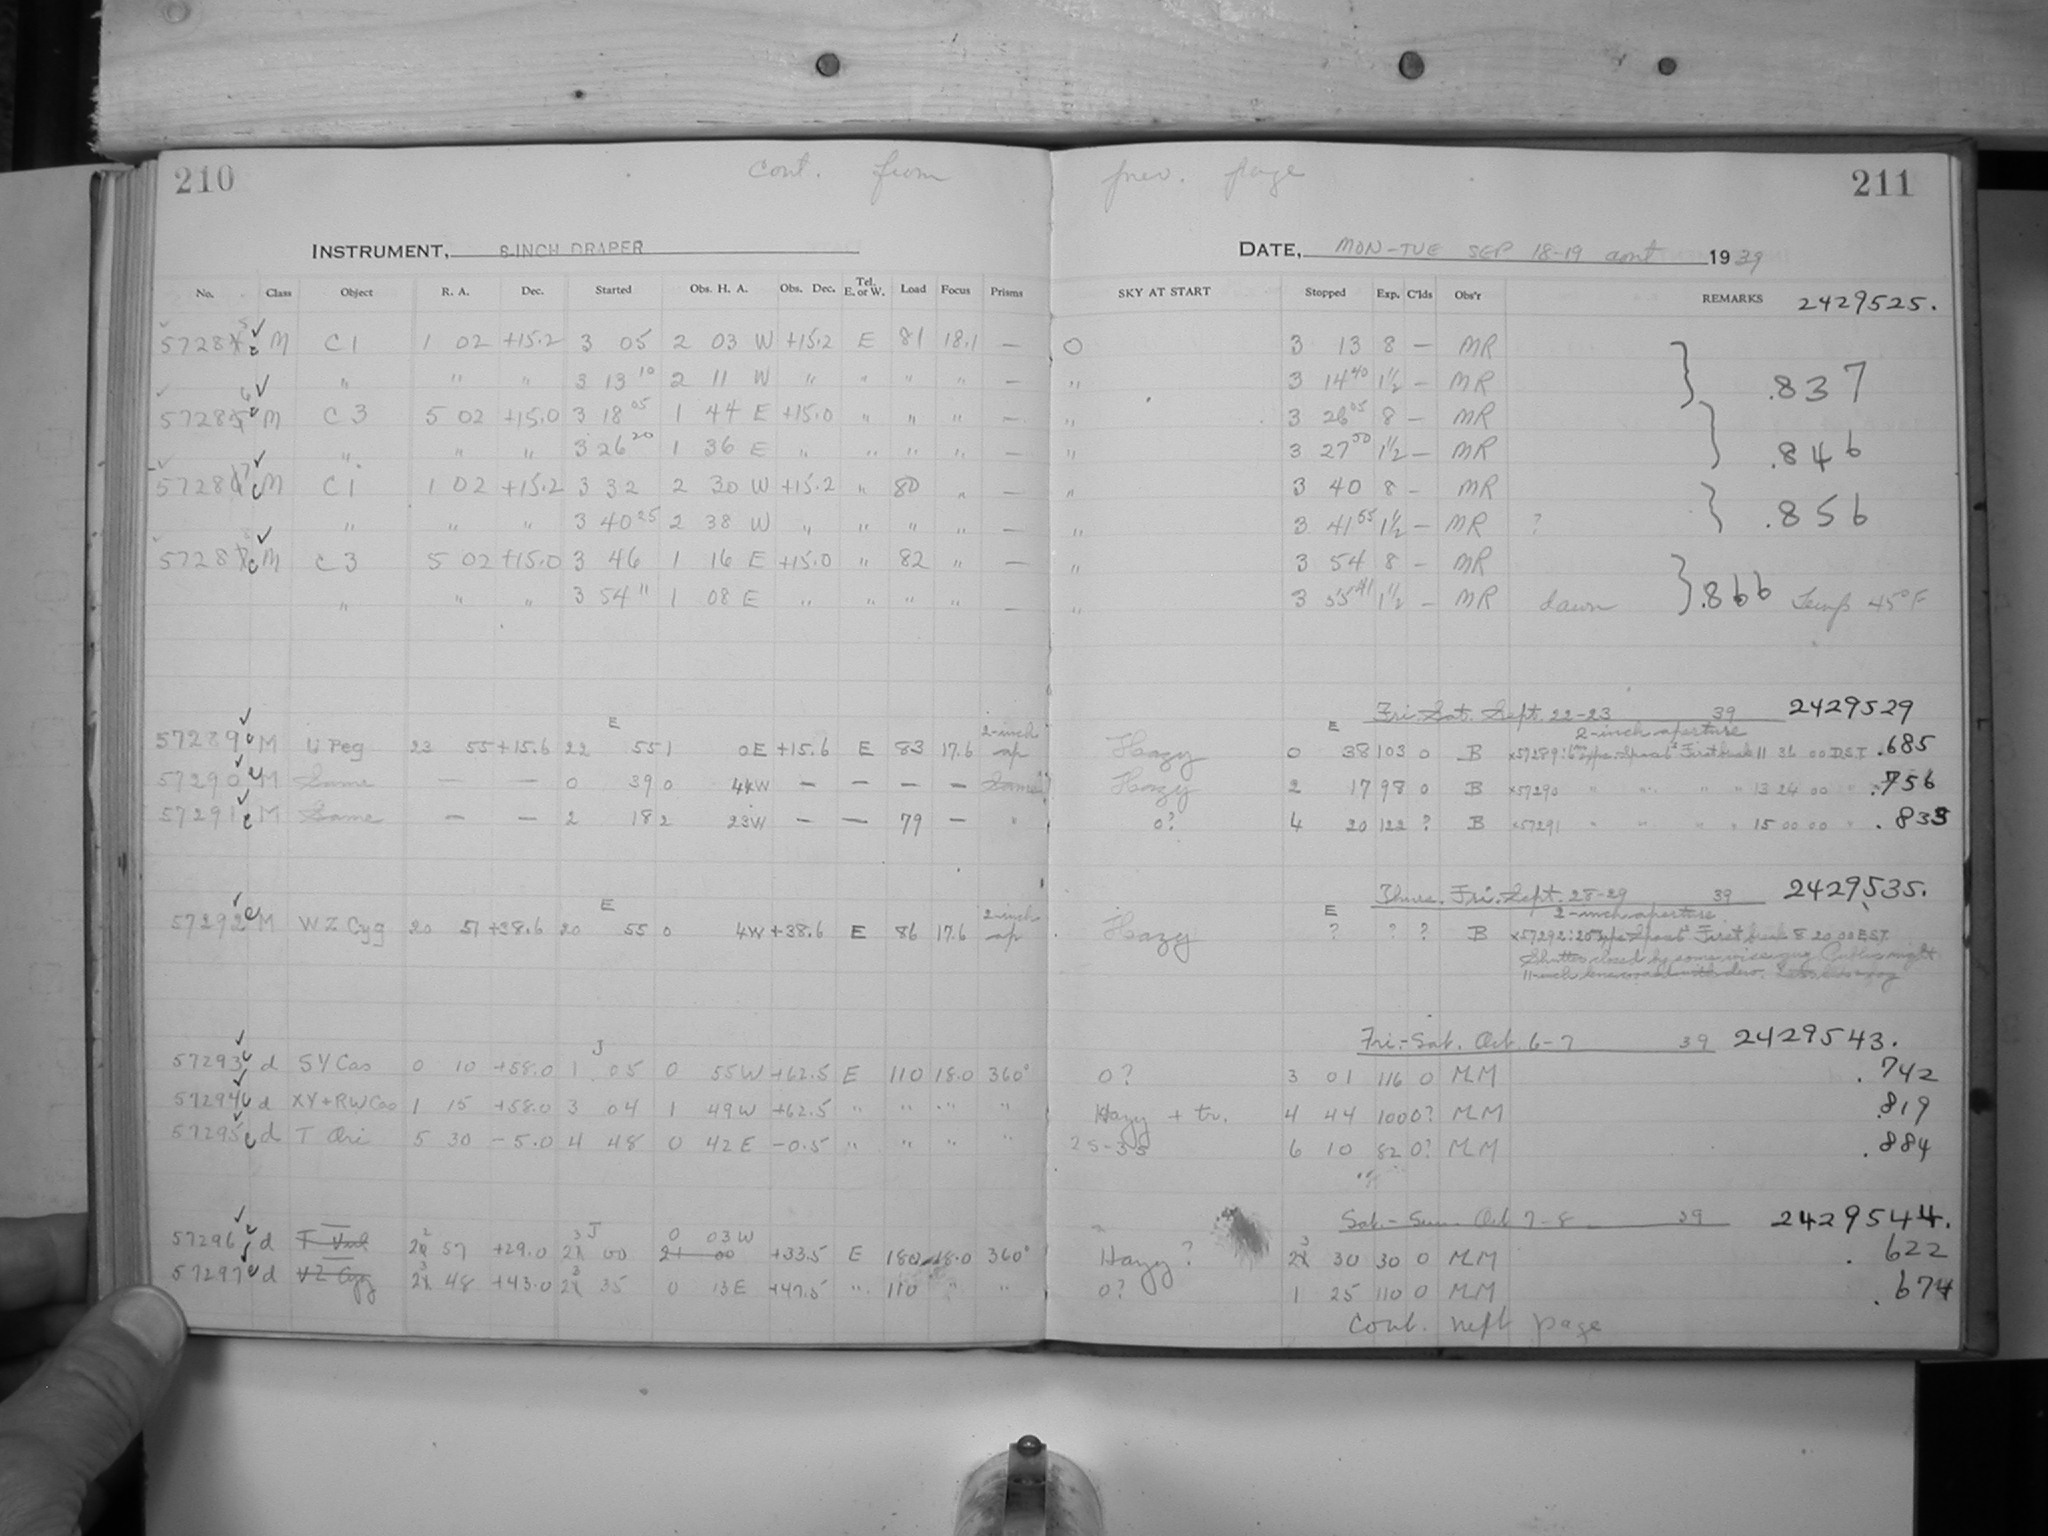 210 cont. from prev. page 211
INSTRUMENT, 8-INCH DRAPER DATE, MON-TUE SEP 18-19 cont 1939
No. Class Object R. A. Dec. Started Obs. H. A. Obs. Dec. Tel. E. or W. Load Focus Prisms SKY AT START Stopped Exp. C'lds Obs'r REMARKS 2429525.
57285 c M C1 1 02 +15.2 3 05 2 03 W +15.2 E 81 18.1 — O 3 13 8 — MR
" " " 3 13 10 2 11 W " " " " — " 3 14 40 1½ — MR } .837
57286 c M C3 5 02 +15.0 3 18 05 1 44 E +15.0 " " " — " 3 26 05 8 — MR
" " " 3 26 20 1 36 E " " " " — " 3 27 50 1½ — MR } .846
57287 c M C1 1 02 +15.2 3 32 2 30 W +15.2 " 80 " — " 3 40 8 — MR
" " " 3 40 25 2 38 W " " " " — " 3 41 55 1½ — MR ? } .856
57288 c M C3 5 02 +15.0 3 46 1 16 E +15.0 " 82 " — " 3 54 8 — MR
" " " 3 54 11 1 08 E " " " " — " 3 55 41 1½ — MR dawn } .866 Temp 45°F
Fri. Sat. Sept. 22-23 39 2429529
57289 c M U Peg 23 55 +15.6 22 E 55 1 0E +15.6 E 83 17.6 2-inch ap Hazy 0 E 38 103 0 B 2-inch aperture x57289: First break 11 36 00 D.S.T. .685
57290 c M Same — — 0 39 0 44W — — — — Same Hazy 2 17 98 0 B x57290 " " " " 13 24 00 " .756
57291 c M Same — — 2 18 2 23W — — 79 — " 0? 4 20 122 ? B x57291 " " " " 15 00 00 " .833
Thurs. Fri. Sept. 28-29 39 2429535.
57292 c M WZ Cyg 20 51 +38.6 20 E 55 0 4W +38.6 E 86 17.6 2-inch ap Hazy E ? ? ? B 2-inch aperture x57292: First break 8 20 00 E.S.T.
Shutter closed by some Public night
11-inch lens with dew.
Fri.-Sat. Oct. 6-7 39 2429543.
57293 c d SY Cas 0 10 +58.0 1 J 05 0 55W +62.5 E 110 18.0 360° 0? 3 01 116 0 MM .742
57294 c d XY+RW Cas 1 15 +58.0 3 04 1 49W +62.5 " " " " Hazy + tr. 4 44 100 0? MM .819
57295 c d T Ori 5 30 -5.0 4 48 0 42E -0.5 " " " " 25-35 6 10 82 0? MM .884
Sat.-Sun. Oct 7-8 39 2429544.
57296 c d T Vul 22 57 +29.0 23 J 00 0 03W 21 00 +33.5 E 180 18.0 360° Hazy? 23 30 30 0 MM .622
57297 c d VZ Cyg 23 48 +43.0 23 35 0 13E +47.5 " 110 " " 0? 1 25 110 0 MM .674
Cont. next page